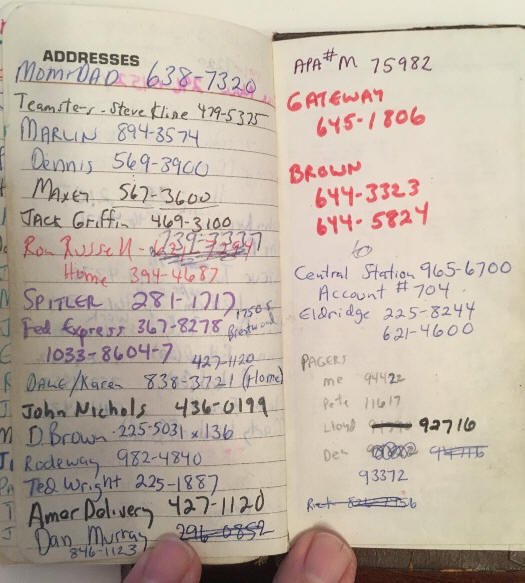 ADDRESSES
MOM & DAD 638-7320
Teamsters - Steve Kline 479-5375
MARLIN 894-3574
Dennis 569-3900
MAXEY 567-3600
JACK Griffin 469-3100
Ron Russell - 739-3337
Home 394-4687
SPITLER 281-1717
Fed Express 367-8278 1750 S Brentwood
1033-8604-7 427-1120
DAVE/Karen 838-3721 (Home)
John Nichols 436-0199
D. Brown - 225-5031 x 136
Rodeway 982-4840
Ted Wright 225-1887
Amer Delivery 427-1120
Dan Murray 296-0852
846-1123
APA # M 75982
GATEWAY
645-1806
BROWN
644-3323
644-5824
Central Station 965-6700
Account # 704
Eldridge 225-8244
621-4600
PAGERS
me 94422
Pete 11617
Lloyd 92716
Den
93372